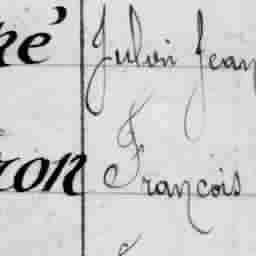 ké Julien Jean
ron François